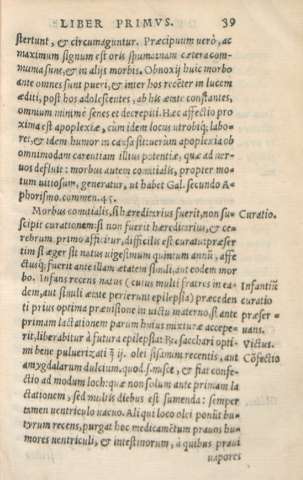 LIBER PRIMVS. 39
stertunt, & circumaguntur. Præcipuum uerò, ac
maximum signum est oris spumanam cætera com-
numa sunt, & in alijs morbis. Obnoxij huic morbo
ante omnes sunt pueri, & inter hos recēter in lucem
æditi, post hos adolescentes, ab his ætate constantes,
omnium minimè senes et decrepiti. Hæc affectio pro
xima est apoplexiæ, cùm idem locus utrobiq; labo-
ret, & idem humor in causa sit: uerum apoplexia ob
omnimodam carentiam illius potentiæ, quæ ad ner-
uos defluit: morbus autem comitialis, propter mo-
tum uitiosum, generatur, ut habet Gal. secundo A
phorismo. commen. 45.
Morbus comitialis, si hæreditarius fuerit, non su- Curatio.
scipit curationem: si non fuerit hæreditarius, & ce-
rebrum primo afficitur, difficilis est curatu: præser
tim si æger sit natus uigesimum quintum annū, affe
ctusq; fuerit ante illam ætatem simili, aut eodem mor
bo. Infans recens natus (cuius multi fratres in ea- Infantiū
dem, aut simili ætate perierunt epilepsia) præceden curatio
ti prius optima præuisione in uictu materno, si ante præser-
primam lactationem parum huius mixturæ accepe- uans.
rit, liberabitur à futura epilepsia: Rx. sacchari opti- Victus.
mi bene puluerizati ℥ ij. olei sisamini recentis, aut Cōfectio
amygdalarum dulcium. quod. s. misce, & fiat confe-
ctio ad modum loch: quæ non solum ante primam la
ctationem, sed multis diebus est sumenda: semper
tamen uentriculo uacuo. Aliqui loco olei ponūt bu-
tyrum recens, purgat hoc medicamētum prauos hu-
mores uentriculi, & intestinorum, à quibus praui
uapores